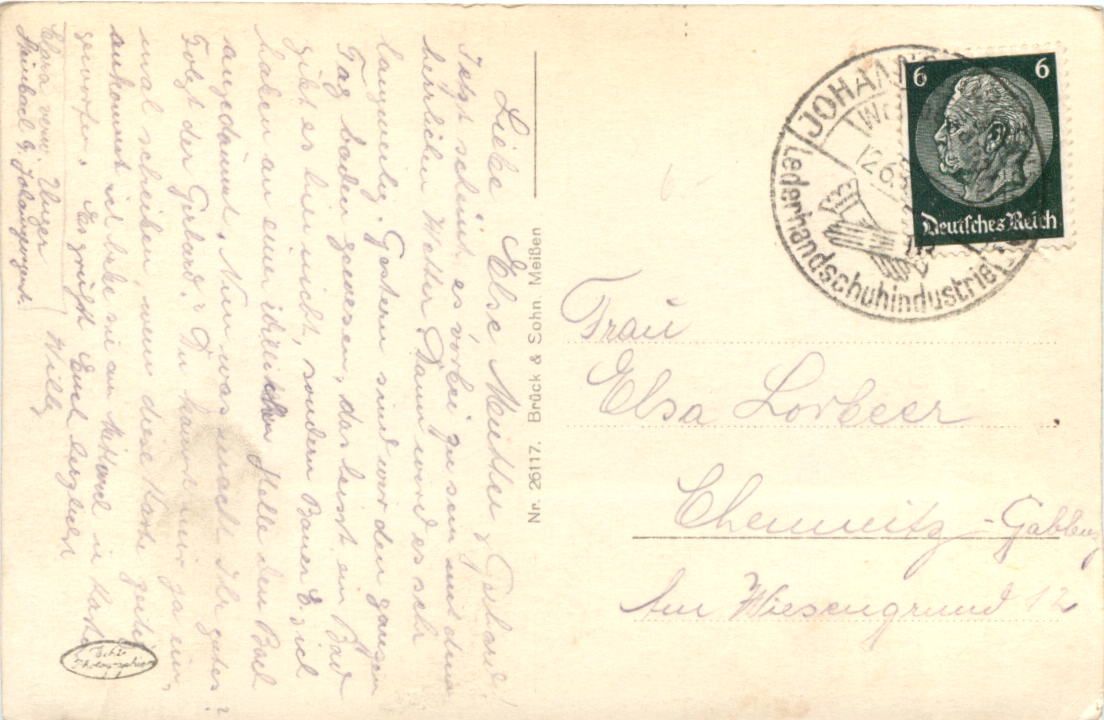 Liebe Else, Mutter, Gerhard!
Jetzt scheint es vorbei zu sein mit dem
herrlichen Wetter. Dann wird es sehr
langweilig. Gestern sind wir den ganzen
Tag baden gewesen, das heisst ein Bad
gibt es hier nicht, sondern Bauer E. sich
haben an einer Stelle den Bach
angedämmt. Nun was macht Ihr gutes?
Folgt der Gerhard? Du kannst mir ja ein-
mal schreiben, wenn diese Karte
ankommt ich habe sie am in
geworfen. Es grüsst Euch herzlichst
Willy
Clara verw. Unger
Steinbach b. Johanngeorgenst.
Nr. 26117. Brück & Sohn. Meißen
Echte
Photographie
JOHANNG
Lederhandschuhindustrie
6 6
Deutsches Reich
Frau
Elsa Lorbeer
Chemnitz-Gablenz
Am Wiesengrund 12